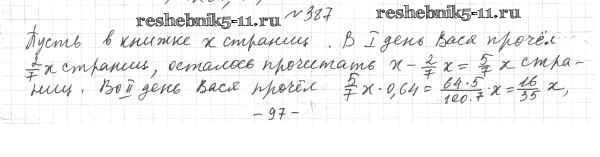 reshebnik5-11.ru №387 reshebnik5-11.ru
Пусть в книжке x страниц. В I день Вася прочёл
2/7 x страниц, осталось прочитать x - 2/7 x = 5/7 x стра-
ниц. Во II день Вася прочёл 5/7 x · 0,64 = 64·5/100·7 · x = 16/35 x,
- 97 -